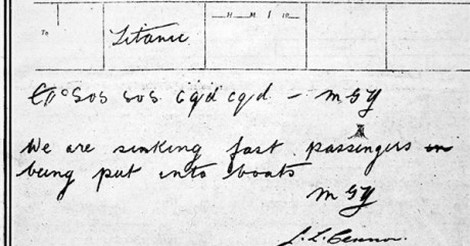 To
Titanic
SOS SOS cqd cqd - MGY
We are sinking fast passengers
being put into boats
MGY